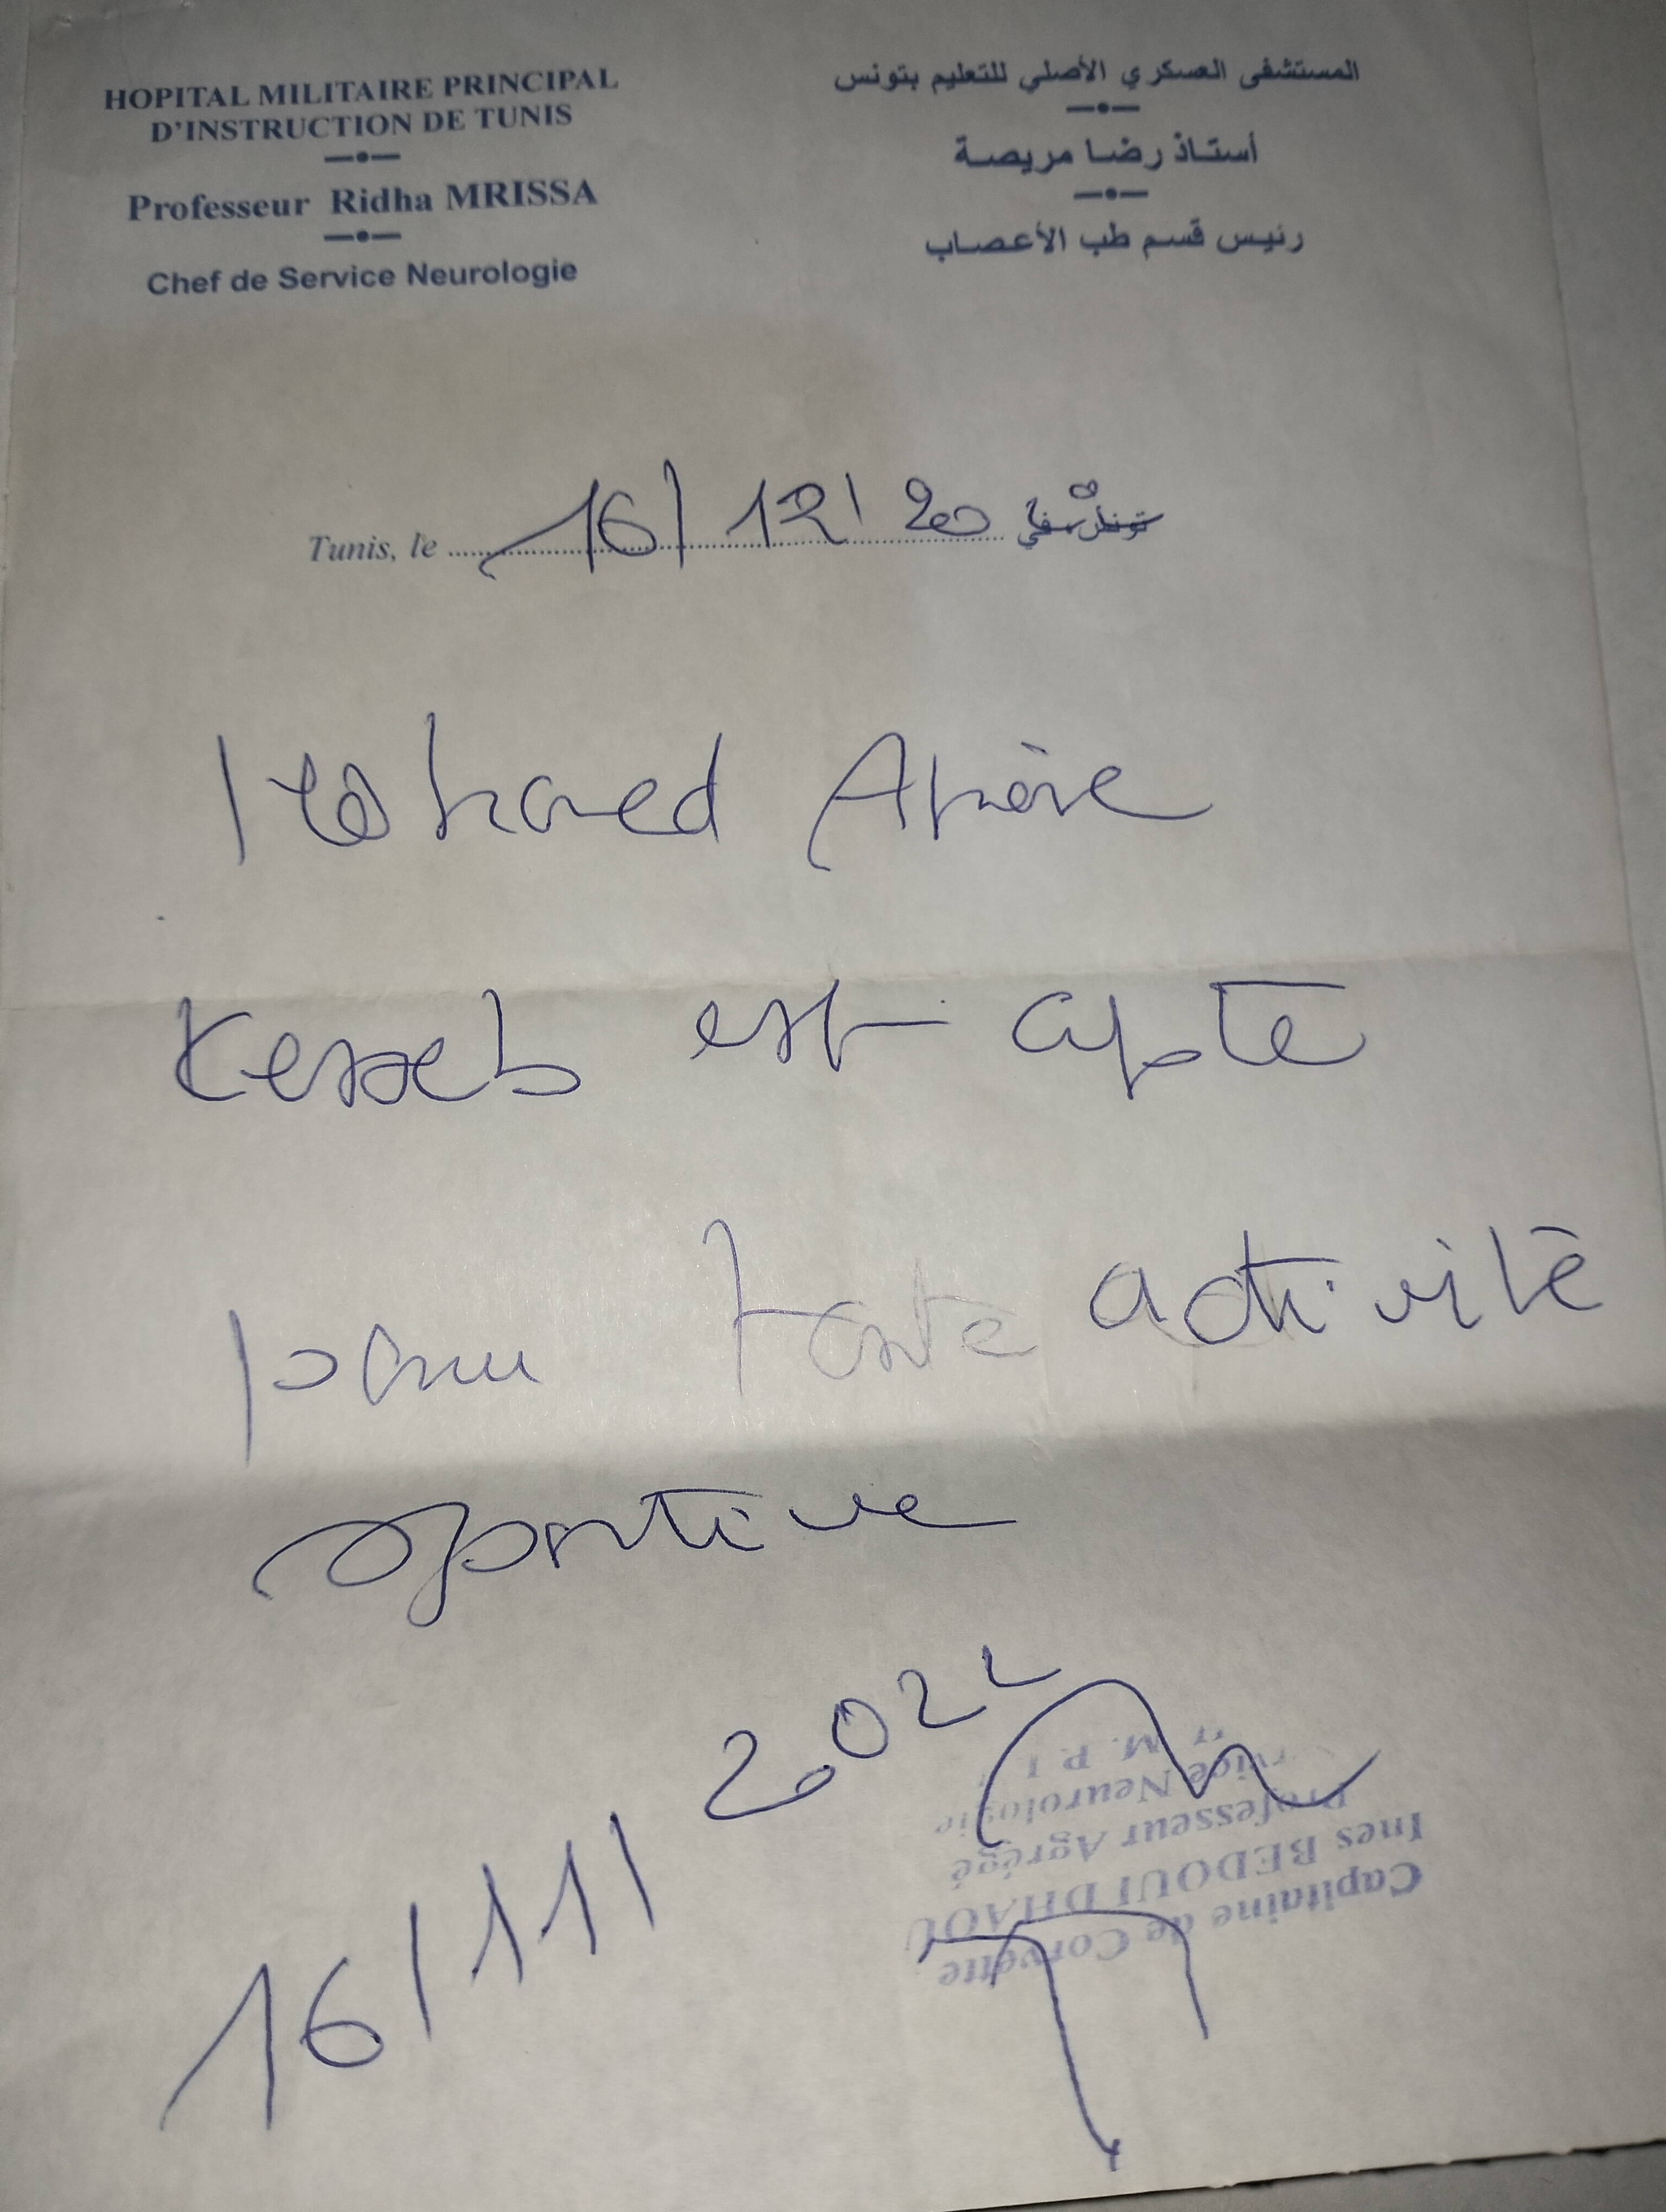 HOPITAL MILITAIRE PRINCIPAL
D'INSTRUCTION DE TUNIS
Professeur Ridha MRISSA
Chef de Service Neurologie
المستشفى العسكري الأصلي للتعليم بتونس
أستاذ رضا مريصة
رئيس قسم طب الأعصاب
Tunis, le 16/12/20
Mohamed
est apte
pour toute activité
sportive
16/11/2022
Capitaine de Corvette
Ines BEDOUI DHAOU
Professeur Agrégé
Neurologie